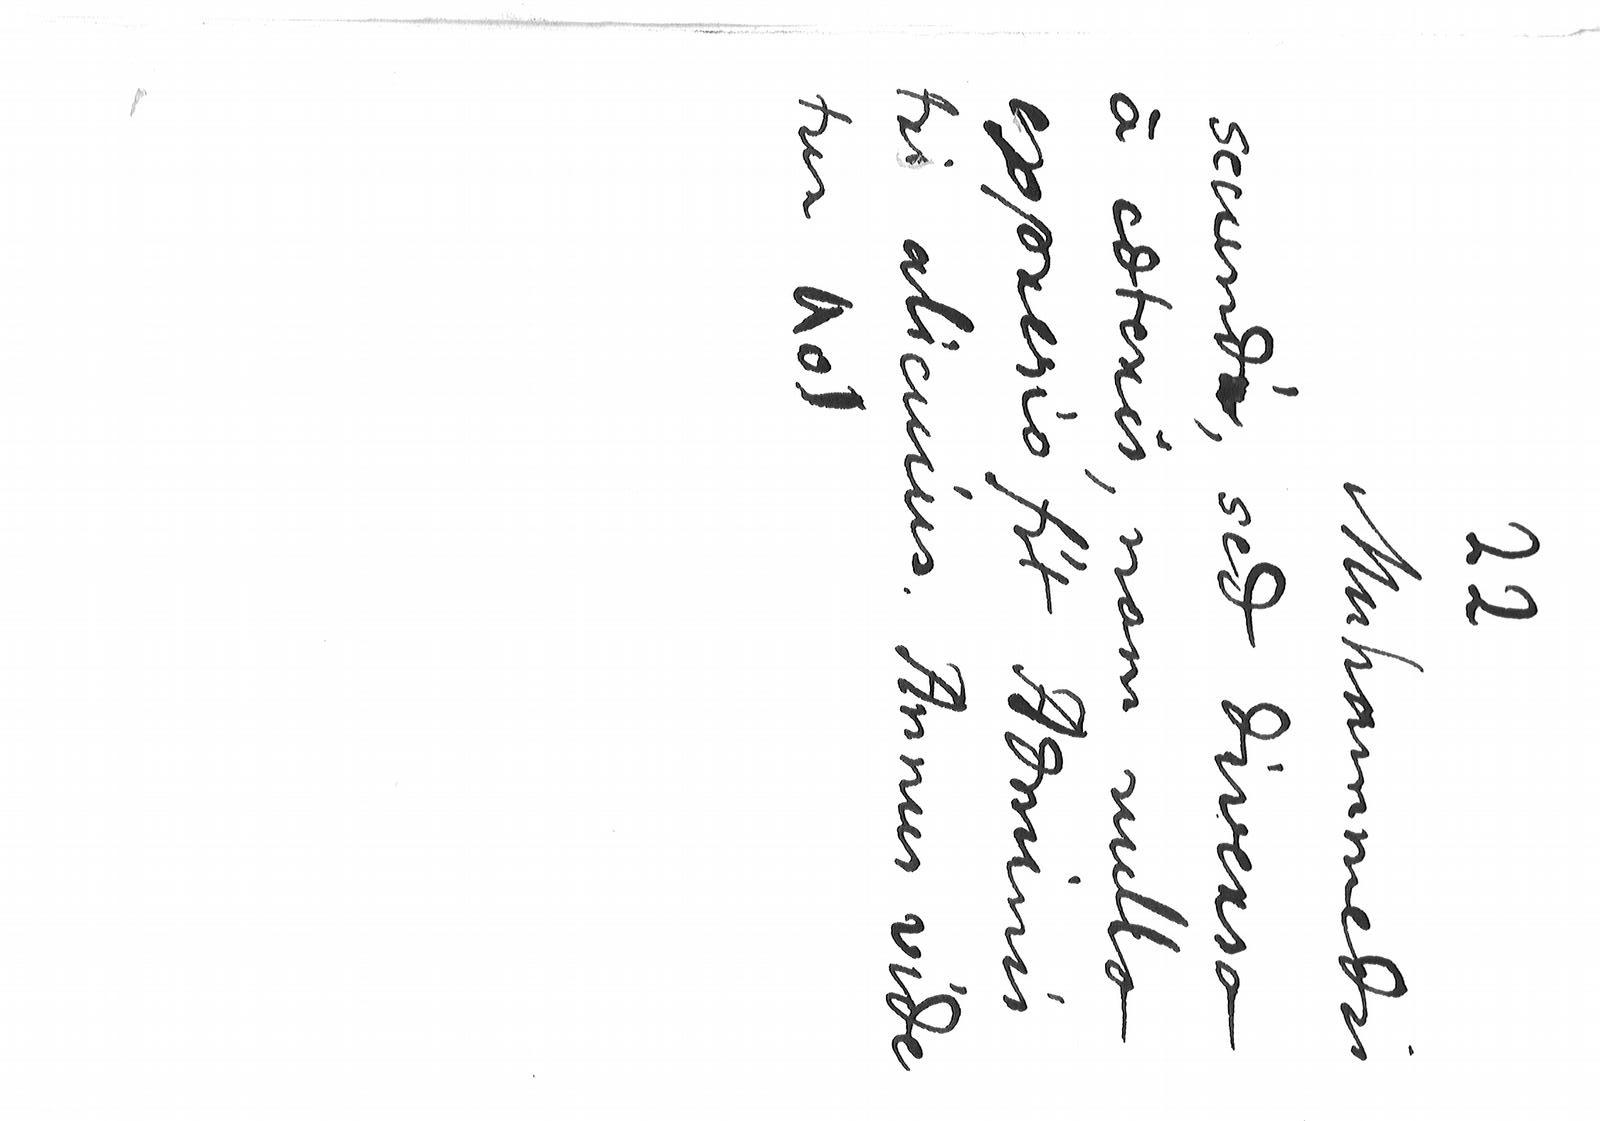 22
Muhammedri
secundo, sed diverso
a ceteris, nam nullo
expressio fit Adomini
tri alicuius. Annus vide
tur hol